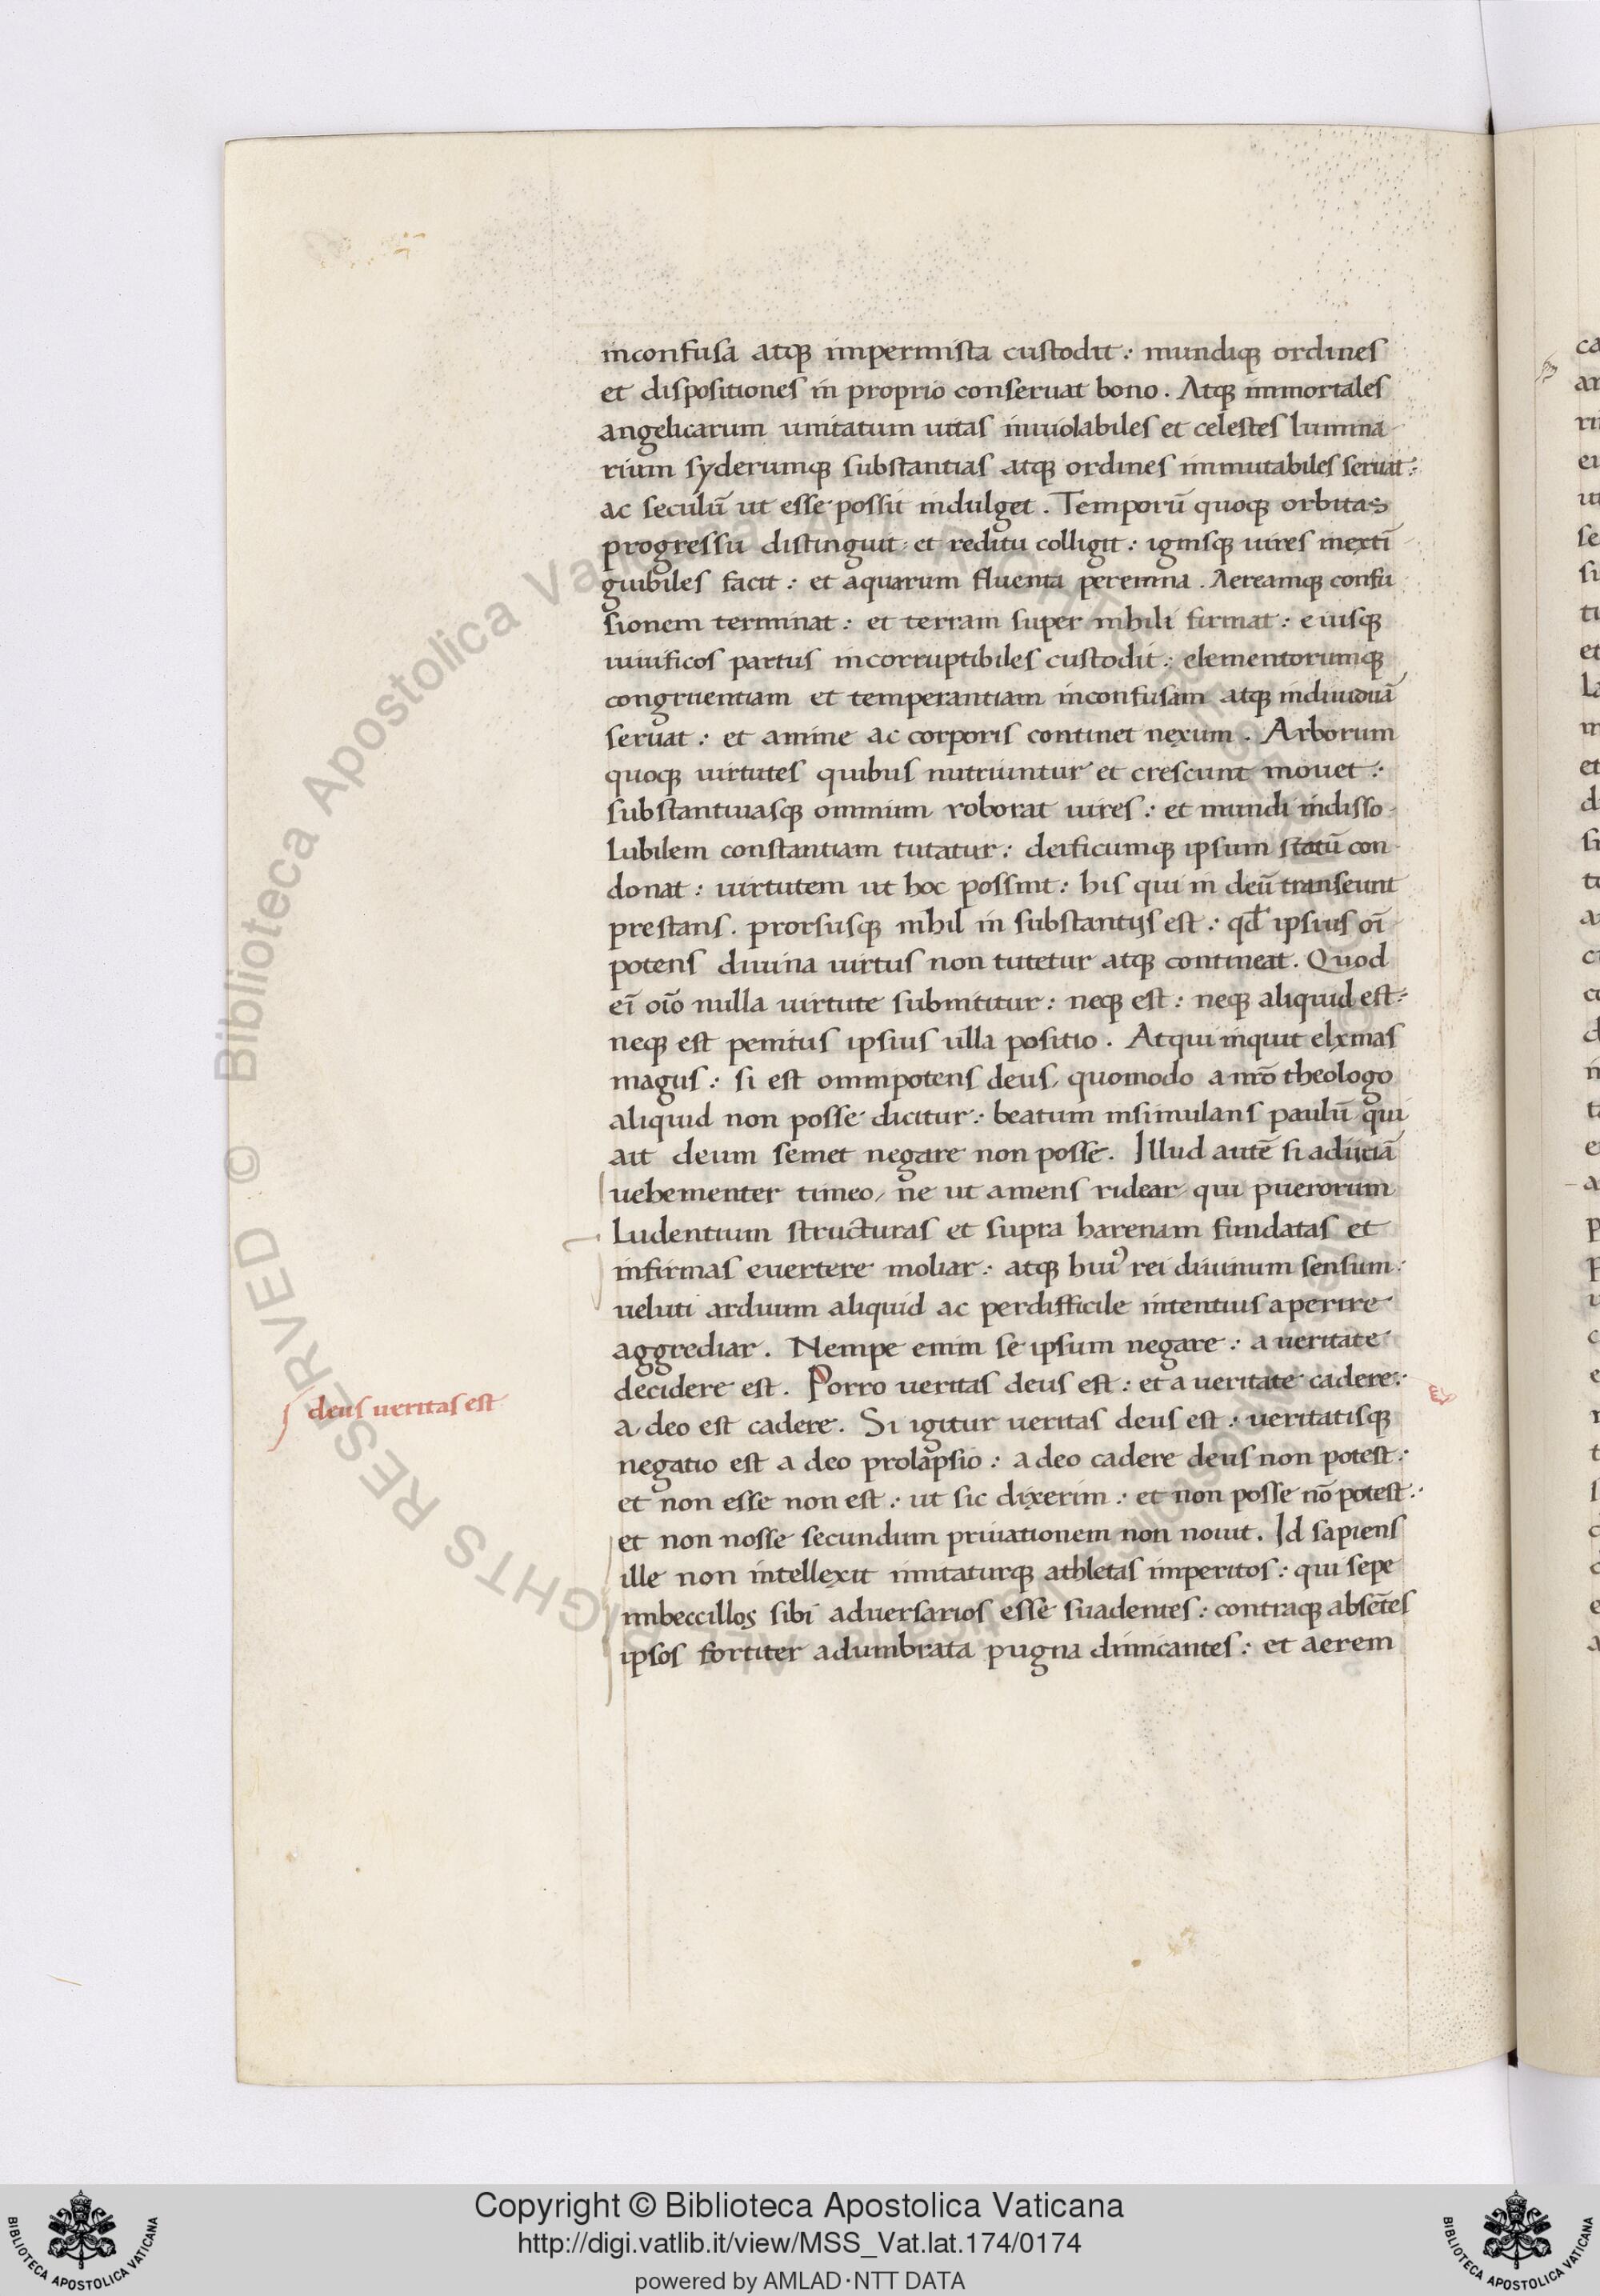 inconfusa atq impermista custodit : mundiq ordines
et dispositiones in proprio conseruat bono . Atq immortales
angelicarum unitatum uitas inuiolabiles et celestes lumina
rium syderumq substantias atq ordines immutabiles seruat :
ac seculū ut esse possit indulget . Temporū quoq orbitas
progressu distinguit : et reditu colligit : ignisq uires inextī
guibiles facit : et aquarum fluenta perenna . Aereamq confu
sionem terminat : et terram super nihili firmat : eiusq
uiuificos partus incorruptibiles custodit : elementorumq
congruentiam et temperantiam inconfusam atq indiuiduā
seruat : et anime ac corporis continet nexum . Arborum
quoq uirtutes quibus nutriuntur et crescunt mouet :
substantiuasq omnium roborat uires : et mundi indisso
lubilem constantiam tutatur : deificumq ipsum statū con
donat : uirtutem ut hoc possint : his qui in deū transeunt
prestans . prorsusq nihil in substantijs est : qd ipsius oī
potens diuina uirtus non tutetur atq contineat . Quod
eī oīo nulla uirtute submititur : neq est : neq aliquid est :
neq est penitus ipsius ulla positio . Atqui inquit elymas
magus : si est omnipotens deus, quomodo a nrō theologo
aliquid non posse dicitur : beatum insimulans paulū qui
ait deum semet negare non posse . Illud autē si adiitiā
uehementer timeo, ne ut amens ridear qui puerorum
Ludentium structuras et supra harenam fundatas et
infirmas euertere moliar : atq huiꝰ rei diuinum sensum
ueluti arduum aliquid ac perdifficile intentius aperire
aggrediar . Nempe enim se ipsum negare : a ueritate
decidere est . Porro ueritas deus est : et a ueritate cadere :
a deo est cadere . Si igitur ueritas deus est : ueritatisq
negatio est a deo prolapsio : a deo cadere deus non potest :
et non esse non est : ut sic dixerim : et non posse nō potest :
et non nosse secundum priuationem non nouit . Id sapiens
ille non intellexit imitaturq athletas imperitos : qui sepe
imbeccillos sibi aduersarios esse suadentes : contraq absētes
ipsos fortiter adumbrata pugna dimicantes : et aerem
deus ueritas est
© Biblioteca Apostolica Vaticana
ALL RIGHTS RESERVED
Copyright © Biblioteca Apostolica Vaticana
http://digi.vatlib.it/view/MSS_Vat.lat.174/0174
powered by AMLAD·NTT DATA
BIBLIOTECA APOSTOLICA VATICANA
BIBLIOTECA APOSTOLICA VATICANA